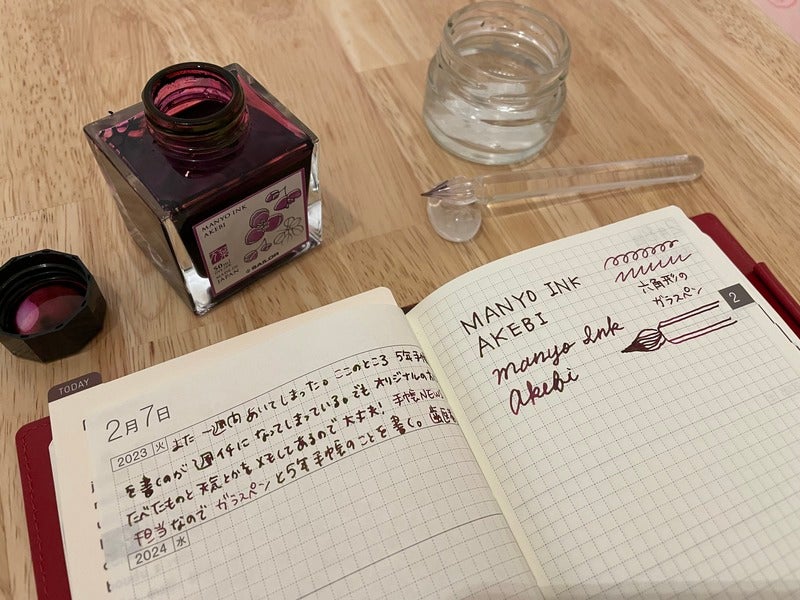 MANYO INK
AKEBI
50ml
JAPAN
SAILOR
TODAY
2月7日
2023 火 また一週間あいてしまった。ここのところ5年手帳
を書くのが週イチになってしまっている。でもオリジナルの
たべたものと天気とかをメモしてあるので大丈夫! 手帳NEWS
担当なのでガラスペンと5年手帳のことを書く。
2024 水
MANYO INK
AKEBI
manyo Ink
Akebi
六角形の
ガラスペン
2